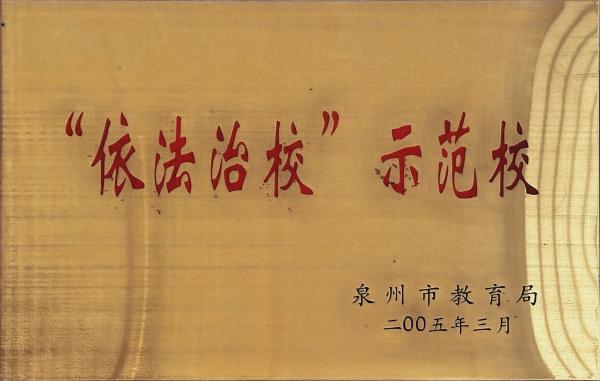 “依法治校”示范校
泉州市教育局
二00五年三月